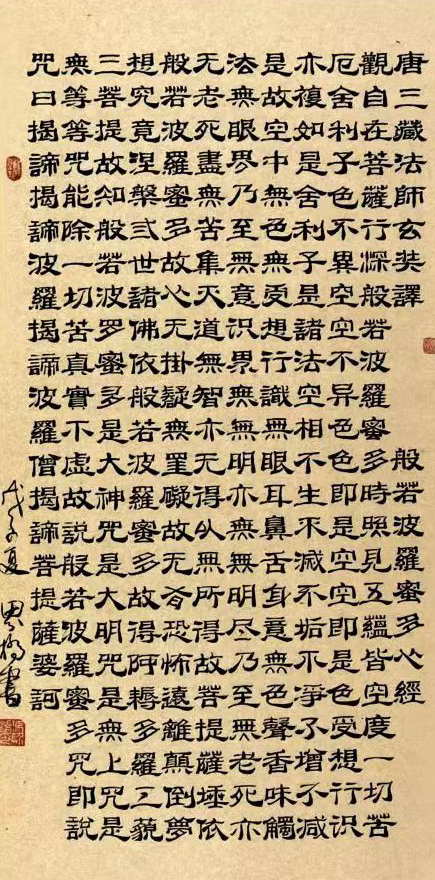 唐三藏法師玄奘譯 般若波羅蜜多心經
觀自在菩薩行深般若波羅蜜多時照見五蘊皆空度一切苦
厄舍利子色不異空空不异色色即是空空即是色受想行识
亦複如是舍利子是諸法空相不生不滅不垢不淨不增不减
是故空中無色無受想行識無眼耳鼻舌身意無色聲香味觸
法無眼界乃至無意识界無無明亦無無明尽乃至無老死亦
无老死盡無苦集灭道無智亦无得以無所得故菩提薩埵依
般若波羅蜜多故心无掛疑無罣礙故无有恐怖遠離顛倒夢
想究竟涅槃弎世諸佛依般若波羅蜜多故得阿耨多羅三藐
三菩提故知般若波罗蜜多是大神咒是大明咒是無上咒是
無等等咒能除一切苦真實不虛故說般若波羅蜜多咒即說
咒曰揭諦揭諦波羅揭諦波羅僧揭諦菩提薩婆訶
戊子夏 書